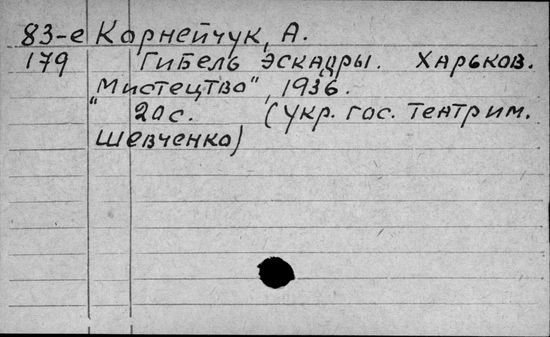 83-е Корнейчук, А.
179 Гибель эскадры. Харьков.
„Мистецтво", 1936.
20 с. (Укр. гос. театр им.
Шевченко)